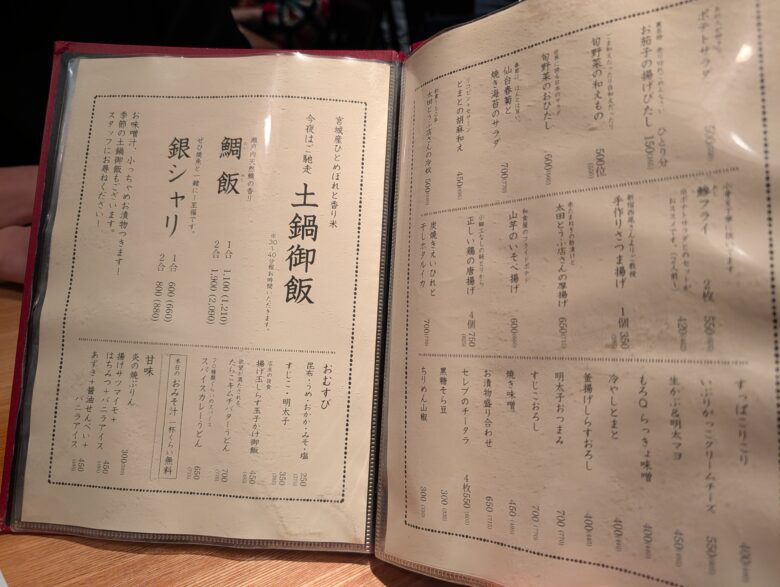 宮城産ひとめぼれと香り米
今夜はご馳走 土鍋御飯
※30～40分程お時間いただきます。
瀬戸内天然鯛の香り
鯛飯
1合 1,100 (1,210)
2合 1,900 (2,090)
ぜひ焼魚と一緒に！至福です。
銀シャリ
1合 600 (660)
2合 800 (880)
お味噌汁、小っちゃめお漬物つきます！
季節の土鍋御飯もございます。
スタッフにお尋ねください！
おむすび
昆布・うめ・おかか・みそ・塩 250
すじこ・明太子 350
揚げ玉しらす玉子かけ御飯 450
たらこキムチバターうどん 700
スパイスカレーうどん 650
本日のおみそ汁 一杯くらい無料
甘味
炎の焼ぷりん 300
揚げサツマイモ＋
はちみつ＋バニラアイス 450
あずき＋醤油せんべい＋
バニラアイス 450
ポテトサラダ 500
お茄子の揚げびたし ひとり分 150
旬野菜の和えもの 500位
旬野菜のおひたし 600
仙台春菊と
焼き海苔のサラダ 700
とまとの胡麻和え 450
太田とうふ店さんの冷奴 600
鯵フライ 2枚 550
手作りさつま揚げ 1個 350
太田とうふ店さんの厚揚げ 650
和食屋のフライドポテト
山芋のいそべ揚げ 600
正しい鶏の唐揚げ 4個 750
炭焼きえいひれと
干しホタルイカ 700
すっぱこりこり 400
いぶりがっこクリームチーズ 550
生かぶ&明太マヨ 450
もろQらっきょ味噌 400
冷やしとまと 400
釜揚げしらすおろし 400
明太子おつまみ 700
すじこおろし 700
焼き味噌 450
お漬物盛り合わせ 650
セレブのチータラ 4枚 550
黒糖そら豆 300
ちりめん山椒 300